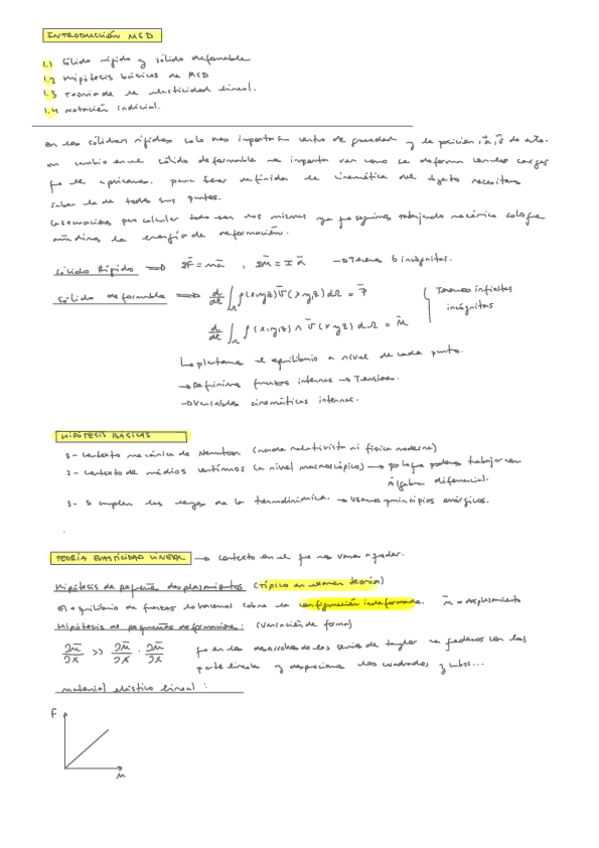 INTRODUCCIÓN MSD
1.1 Sólido rígido y sólido deformable
1.2 Hipótesis básicas de MSD
1.3 Teoría de la elasticidad lineal.
1.4 Notación indicial.
En los sólidos rígidos solo nos importaba centro de gravedad y la posición, ā, v̄ de este.
en cambio en el sólido deformable nos importa ver como se deforma con las cargas
que le aplicamos. para tener definida la cinemática del objeto necesitamos
saber la de todos sus puntos.
Las ecuaciones para calcular todo son las mismas ya que seguimos trabajando mecánica solo que
añadimos la energía de deformación.
Sólido Rígido ⟹ ΣF̄ = mā , ΣM̄ = I ᾱ → Tenemos 6 incógnitas.
Sólido deformable ⟹ d/dt ∫Ω ρ(x,y,z) v̄(x,y,z) dΩ = F̄ { Tenemos infinitas incógnitas
d/dt ∫Ω ρ(x,y,z) ∧ v̄(x,y,z) dΩ = M̄
↳ plantamos el equilibrio a nivel de cada punto.
→ Definimos fuerzas internas → Tensiones.
→ Variables cinemáticas internas.
HIPÓTESIS BÁSICAS
1- Contexto mecánica de Newton (nada relativista ni física moderna)
2- Contexto de medios continuos (a nivel macroscópico) → por lo que podemos trabajar con
álgebra diferencial.
3- Se cumplen las leyes de la termodinámica. → Usamos principios enérgicos.
TEORÍA ELASTICIDAD LINEAL → contexto en el que nos vamos a quedar.
Hipótesis de pequeños desplazamientos (típico en examen teoría)
El equilibrio de fuerzas lo haremos sobre la configuración indeformada. ū = desplazamiento
Hipótesis de pequeñas deformaciones: (variación de forma)
∂ū/∂x >> ∂ū/∂x · ∂ū/∂x que en los desarrollos de las series de taylor nos quedamos con las
parte lineales y despreciamos los cuadrados, y cubos...
material elástico lineal:
F
u